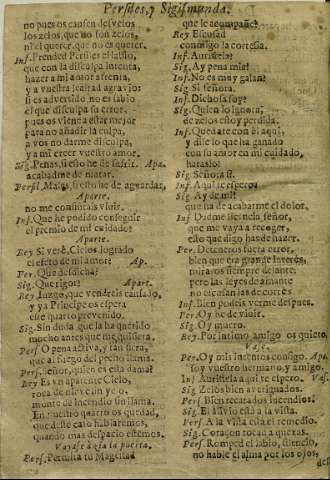 Persiles, y Sigismunda.
no pues os causen desvelos
los zelos, que no son zelos,
ni el querer, que no es querer.
Inf. Prended Persiles el labio,
que con la disculpa intenta,
hazer a mi amor afrenta,
y a vuestra lealtad agravio:
si es advertido, no es sabio
el que disculpa su error,
pues os viene a estar mejor
para no añadir la culpa,
a vos no darme disculpa,
y a mi creer vuestro amor.
Sig. Penas, si esto he de sufrir, Apa.
acabadme de matar.
Persil. Males, si esto he de aguardar,
Aparte.
no me consintais vivir.
Inf. Que he podido conseguir
el premio de mi cuidado?
Aparte.
Rey Si verè, Cielos, logrado
el efeto de mi amor? Ap.
Per. Que desdicha?
Sig. Que rigor? Apart.
Rey Iuzgo, que vendreis cansado,
y ya Principe os espera
esse quarto prevenido.
Sig. Sin duda que la ha querido
mucho antes que me quisiera.
Pers. O pena activa, y tan fiera,
que al fuego del pecho llama.
Pers. Señor, quien es esta dama?
Rey Es vn aparente Cielo,
roca de nieve sin yelo,
monte de incendio sin llama.
En nuestro quarto os quedad,
que deste caso hablaremos,
quando mas despacio estèmos.
Vayase àzia la puerta.
Pers. Permita tu Magestad
que le acompañe.
Rey Escusad
conmigo la cortesia.
Inf. Auristela?
Sig. Ay pena mia!
Inf. No es muy galan?
Sig. Si señora.
Inf. Dichosa soy?
Sig. Quien lo ignora,
de zelos estoy perdida.
Inf. Quedate con èl aqui,
y dile lo que ha ganado
con su amor en mi cuidado,
haraslo?
Sig. Señora si.
Inf. Aqui te espero.
Sig. Ay de mi!
que ha de acabarme el dolor.
Inf. Dadme licencia, señor,
que me vaya a recoger,
esto que digo has de hazer.
Per. Deteneros fuera error,
bien que era grande interès,
miraros siempre delante;
pero las leyes de amante
no escusan las de cortès.
Inf. Bien podeis verme despues.
Per. Oy he de vivir.
Sig. Oy muero.
Rey. Por intimo amigo os quiero,
Vase.
Per. Oy mis intentos consigo. Apa.
soy vuestro hermano, y amigo.
Inf Auristela aqui te espero. Vas.
Sig. Zelos bien averiguados.
Pers. Bien recatados incendios!
Sig. El alivio està a la vista.
Pers. A la vista està el remedio.
Sig. Coraçon tocad a quexas.
Pers. Romped el labio, silencio,
no hable el alma por los ojos,